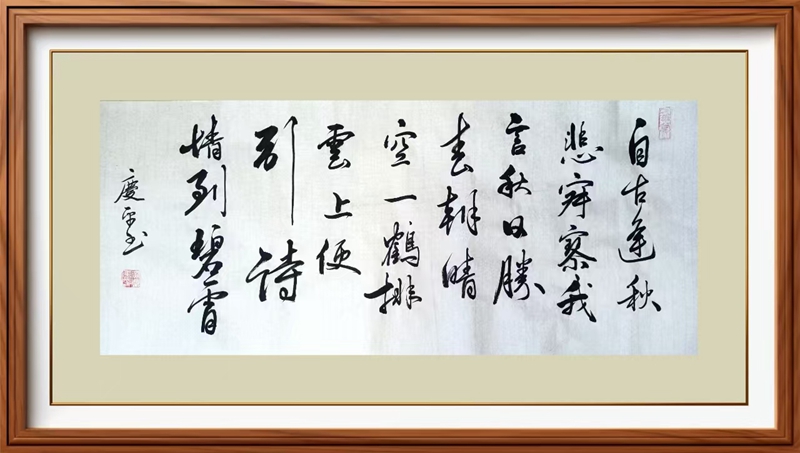 自古逢秋
悲寂寥我
言秋日勝
春朝晴
空一鶴排
雲上便
引詩
情到碧霄
慶